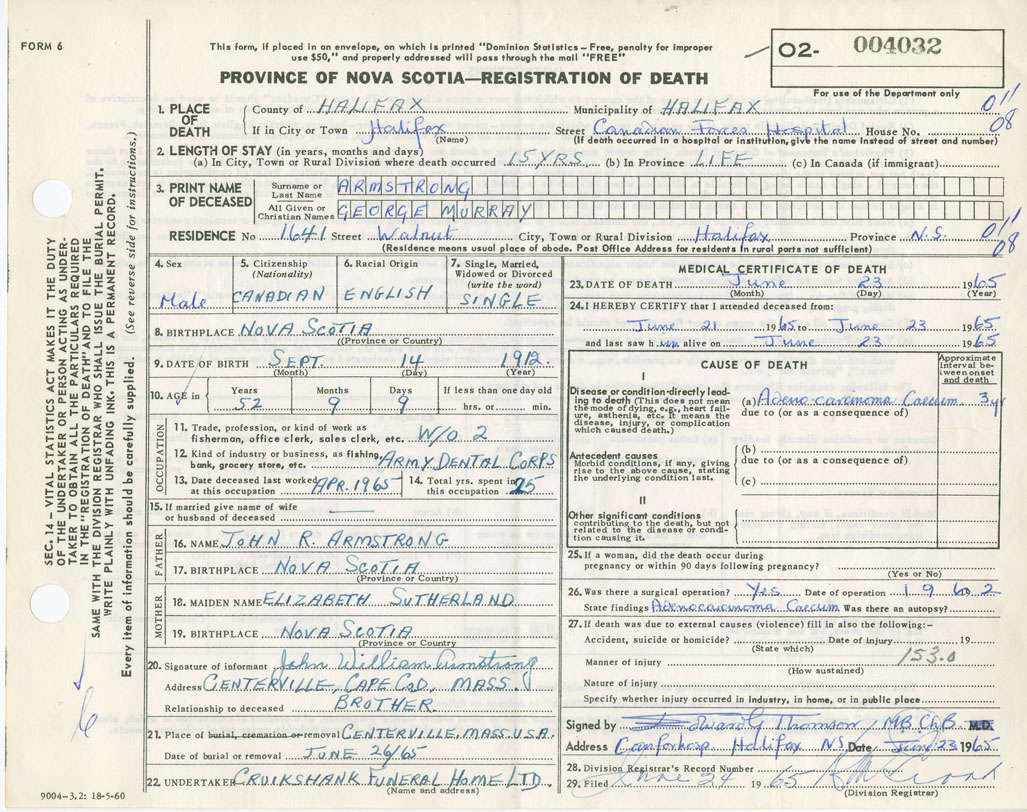 FORM 6
This form, if placed in an envelope, on which is printed "Dominion Statistics – Free, penalty for improper
use $50," and properly addressed will pass through the mail "FREE"
O2- 004032
For use of the Department only
PROVINCE OF NOVA SCOTIA—REGISTRATION OF DEATH
011
08
1. PLACE OF DEATH
County of HALIFAX Municipality of HALIFAX
If in City or Town Halifax Street Canadian Forces Hospital House No.
(Name) (If death occurred in a hospital or institution, give the name instead of street and number)
2. LENGTH OF STAY (in years, months and days)
(a) In City, Town or Rural Division where death occurred 15 YRS. (b) In Province LIFE (c) In Canada (if immigrant)
3. PRINT NAME OF DECEASED
Surname or Last Name ARMSTRONG
All Given or Christian Names GEORGE MURRAY
RESIDENCE No 1641 Street Walnut City, Town or Rural Division Halifax Province N.S.
(Residence means usual place of abode. Post Office Address for residents in rural parts not sufficient)
011
08
4. Sex Male
5. Citizenship (Nationality) CANADIAN
6. Racial Origin ENGLISH
7. Single, Married, Widowed or Divorced (write the word) SINGLE
8. BIRTHPLACE NOVA SCOTIA
(Province or Country)
9. DATE OF BIRTH SEPT. 14 1912.
(Month) (Day) (Year)
10. AGE in Years 52 Months 9 Days 9 If less than one day old hrs. or min.
OCCUPATION
11. Trade, profession, or kind of work as
fisherman, office clerk, sales clerk, etc. W/O 2
12. Kind of industry or business, as fishing,
bank, grocery store, etc. ARMY DENTAL CORPS
13. Date deceased last worked at this occupation APR. 1965
14. Total yrs. spent in this occupation 25
15. If married give name of wife
or husband of deceased
FATHER
16. NAME JOHN R. ARMSTRONG
17. BIRTHPLACE NOVA SCOTIA
(Province or Country)
MOTHER
18. MAIDEN NAME ELIZABETH SUTHERLAND
19. BIRTHPLACE NOVA SCOTIA
(Province or Country)
20. Signature of informant John William Armstrong
Address CENTERVILLE, CAPE COD, MASS.
Relationship to deceased BROTHER
21. Place of burial, cremation or removal CENTERVILLE, MASS. U.S.A.
Date of burial or removal JUNE 26/65
22. UNDERTAKER CRUIKSHANK FUNERAL HOME LTD.
(Name and address)
MEDICAL CERTIFICATE OF DEATH
23. DATE OF DEATH June 23 1965
(Month) (Day) (Year)
24. I HEREBY CERTIFY that I attended deceased from:
June 21 1965 to June 23 1965
and last saw him alive on June 23 1965
CAUSE OF DEATH
Approximate interval between onset and death
I
Disease or condition directly leading to death (This does not mean the mode of dying, e.g., heart failure, asthenia, etc. It means the disease, injury, or complication which caused death.)
(a) Adeno carcinoma Caecum 3 yr
due to (or as a consequence of)
Antecedent causes
Morbid conditions, if any, giving rise to the above cause, stating the underlying condition last.
(b)
due to (or as a consequence of)
(c)
II
Other significant conditions
contributing to the death, but not related to the disease or condition causing it.
25. If a woman, did the death occur during
pregnancy or within 90 days following pregnancy?
(Yes or No)
26. Was there a surgical operation? Yes Date of operation 1962
State findings Adenocarcinoma Caecum Was there an autopsy?
27. If death was due to external causes (violence) fill in also the following:–
Accident, suicide or homicide? Date of injury 19
(State which)
153.0
Manner of injury
(How sustained)
Nature of injury
Specify whether injury occurred in industry, in home, or in public place
Signed by Edward G Thomson M.B. Ch.B. M.D.
Address Canforhosp Halifax NS Date June 23 1965
28. Division Registrar's Record Number
29. Filed June 24 1965
(Division Registrar)
SEC. 14 – VITAL STATISTICS ACT MAKES IT THE DUTY
OF THE UNDERTAKER OR PERSON ACTING AS UNDER-
TAKER TO OBTAIN ALL THE PARTICULARS REQUIRED
IN THE "REGISTRATION OF DEATH" AND TO FILE THE
SAME WITH THE DIVISION REGISTRAR WHO SHALL ISSUE THE BURIAL PERMIT.
WRITE PLAINLY WITH UNFADING INK. THIS IS A PERMANENT RECORD.
Every item of information should be carefully supplied. (See reverse side for instructions.)
9004–3.2: 18-5-60